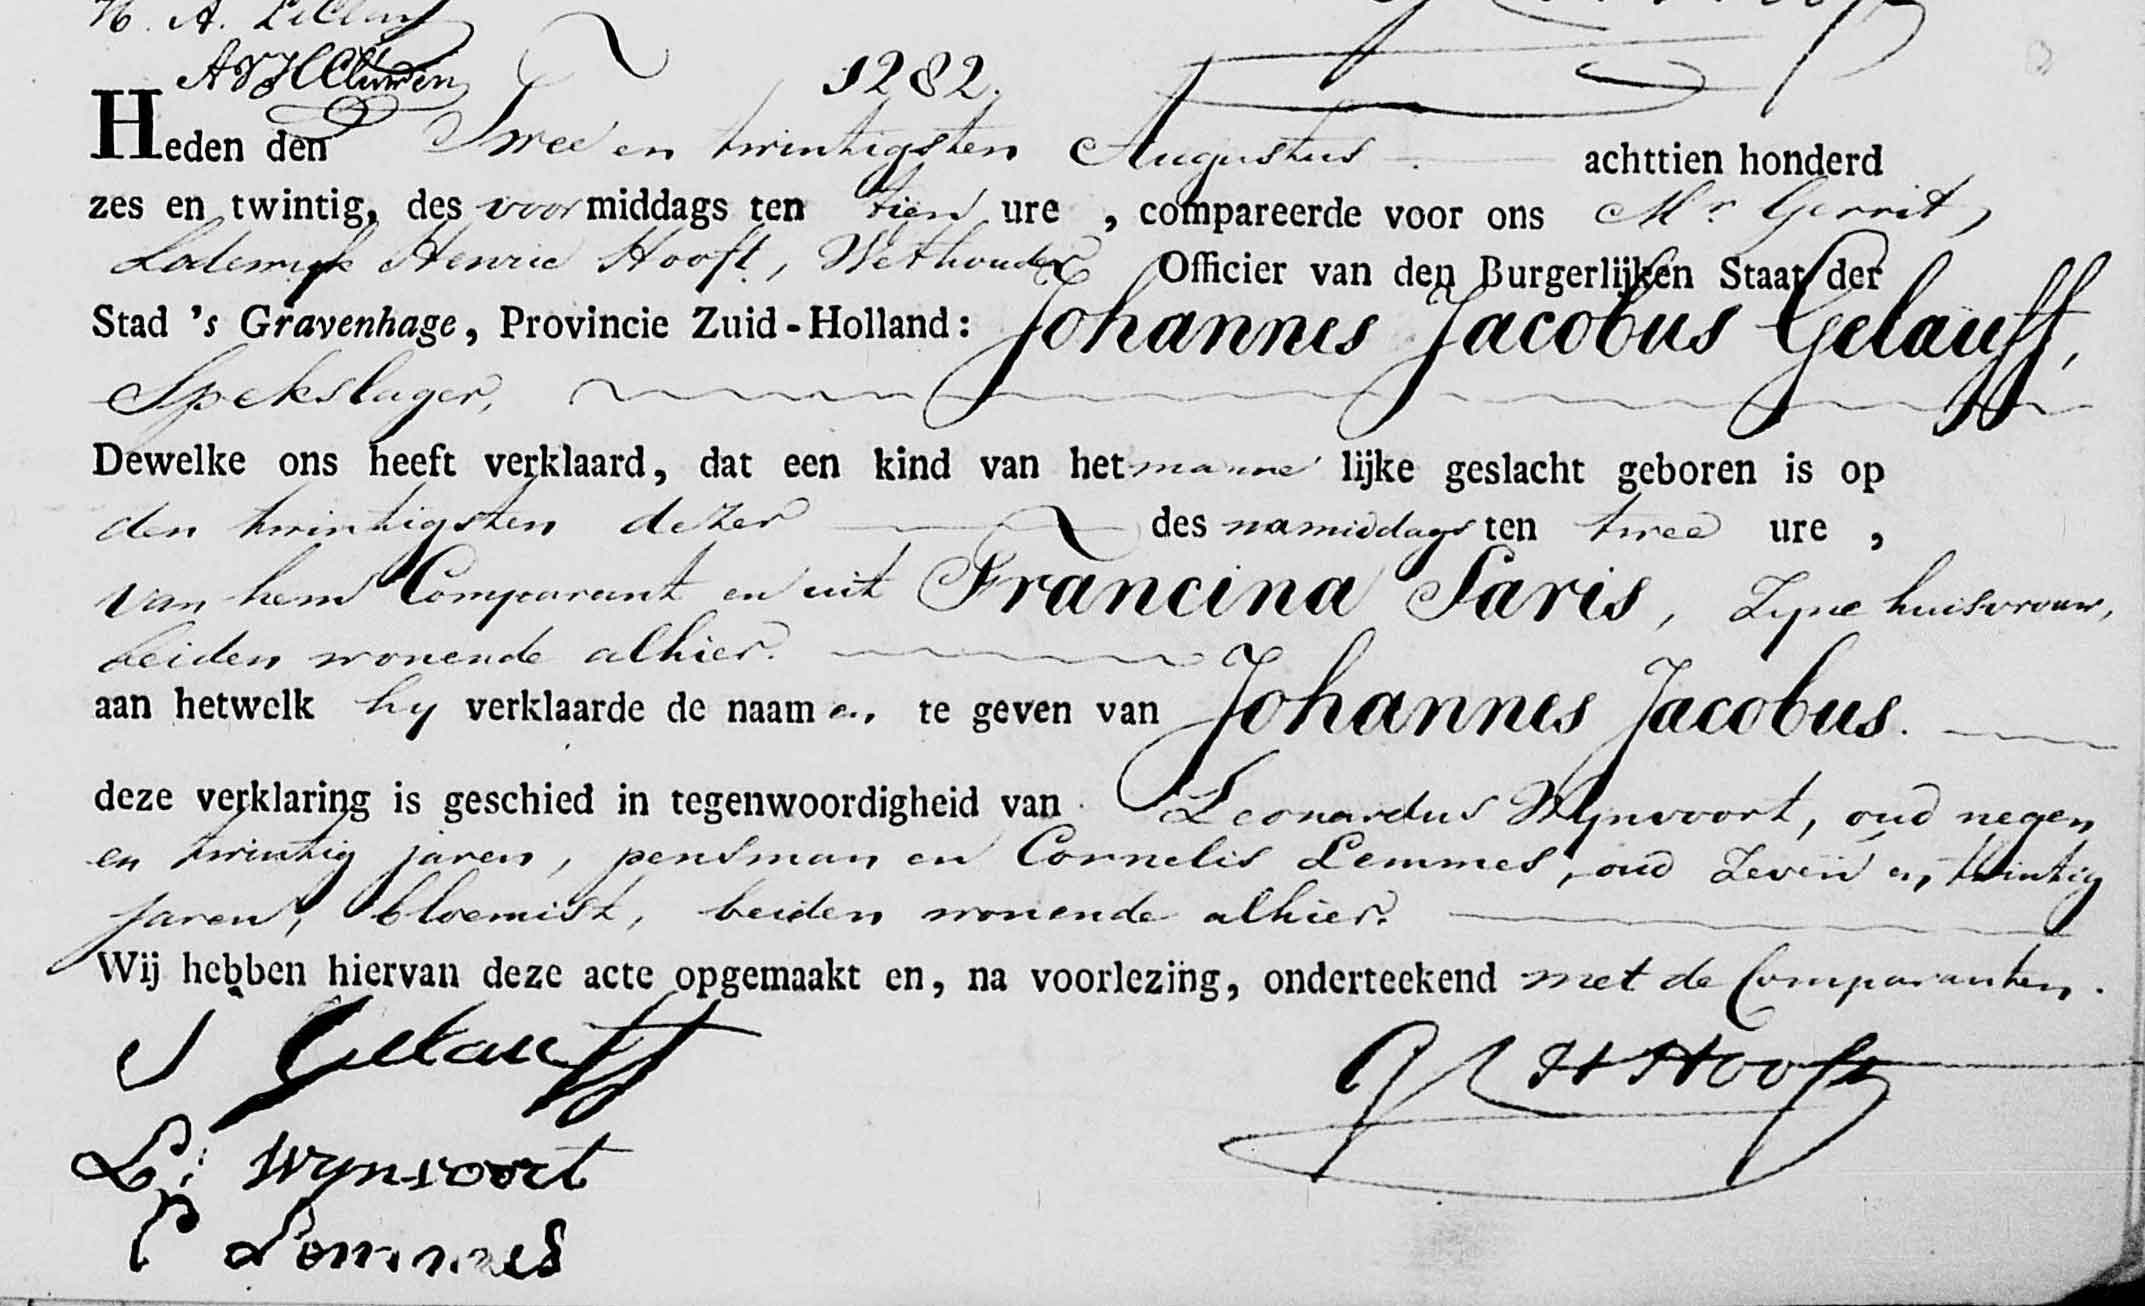 1282.
Heden den Twee en twintigsten Augustus achttien honderd
zes en twintig, des voormiddags ten tien ure, compareerde voor ons Mr Gerrit,
Lodewyk Henric Hooft, Wethouder Officier van den Burgerlijken Staat der
Stad 's Gravenhage, Provincie Zuid-Holland: Johannes Jacobus Gelauff,
Spekslager,
Dewelke ons heeft verklaard, dat een kind van het mannelijke geslacht geboren is op
den twintigsten dezer des namiddags ten twee ure,
van hem Comparant en uit Francina Saris, Zyne huisvrouw,
beiden wonende alhier.
aan hetwelk hy verklaarde de naamen te geven van Johannes Jacobus.
deze verklaring is geschied in tegenwoordigheid van Leonardus Wynvoort, oud negen
en twintig jaren, pensman en Cornelis Lemmes, oud Zeven en twintig
jaren, bloemist, beiden wonende alhier.
Wij hebben hiervan deze acte opgemaakt en, na voorlezing, onderteekend met de Comparanten.
J Gelauff
G L H Hooft
L: Wynvoort
C Lemmes